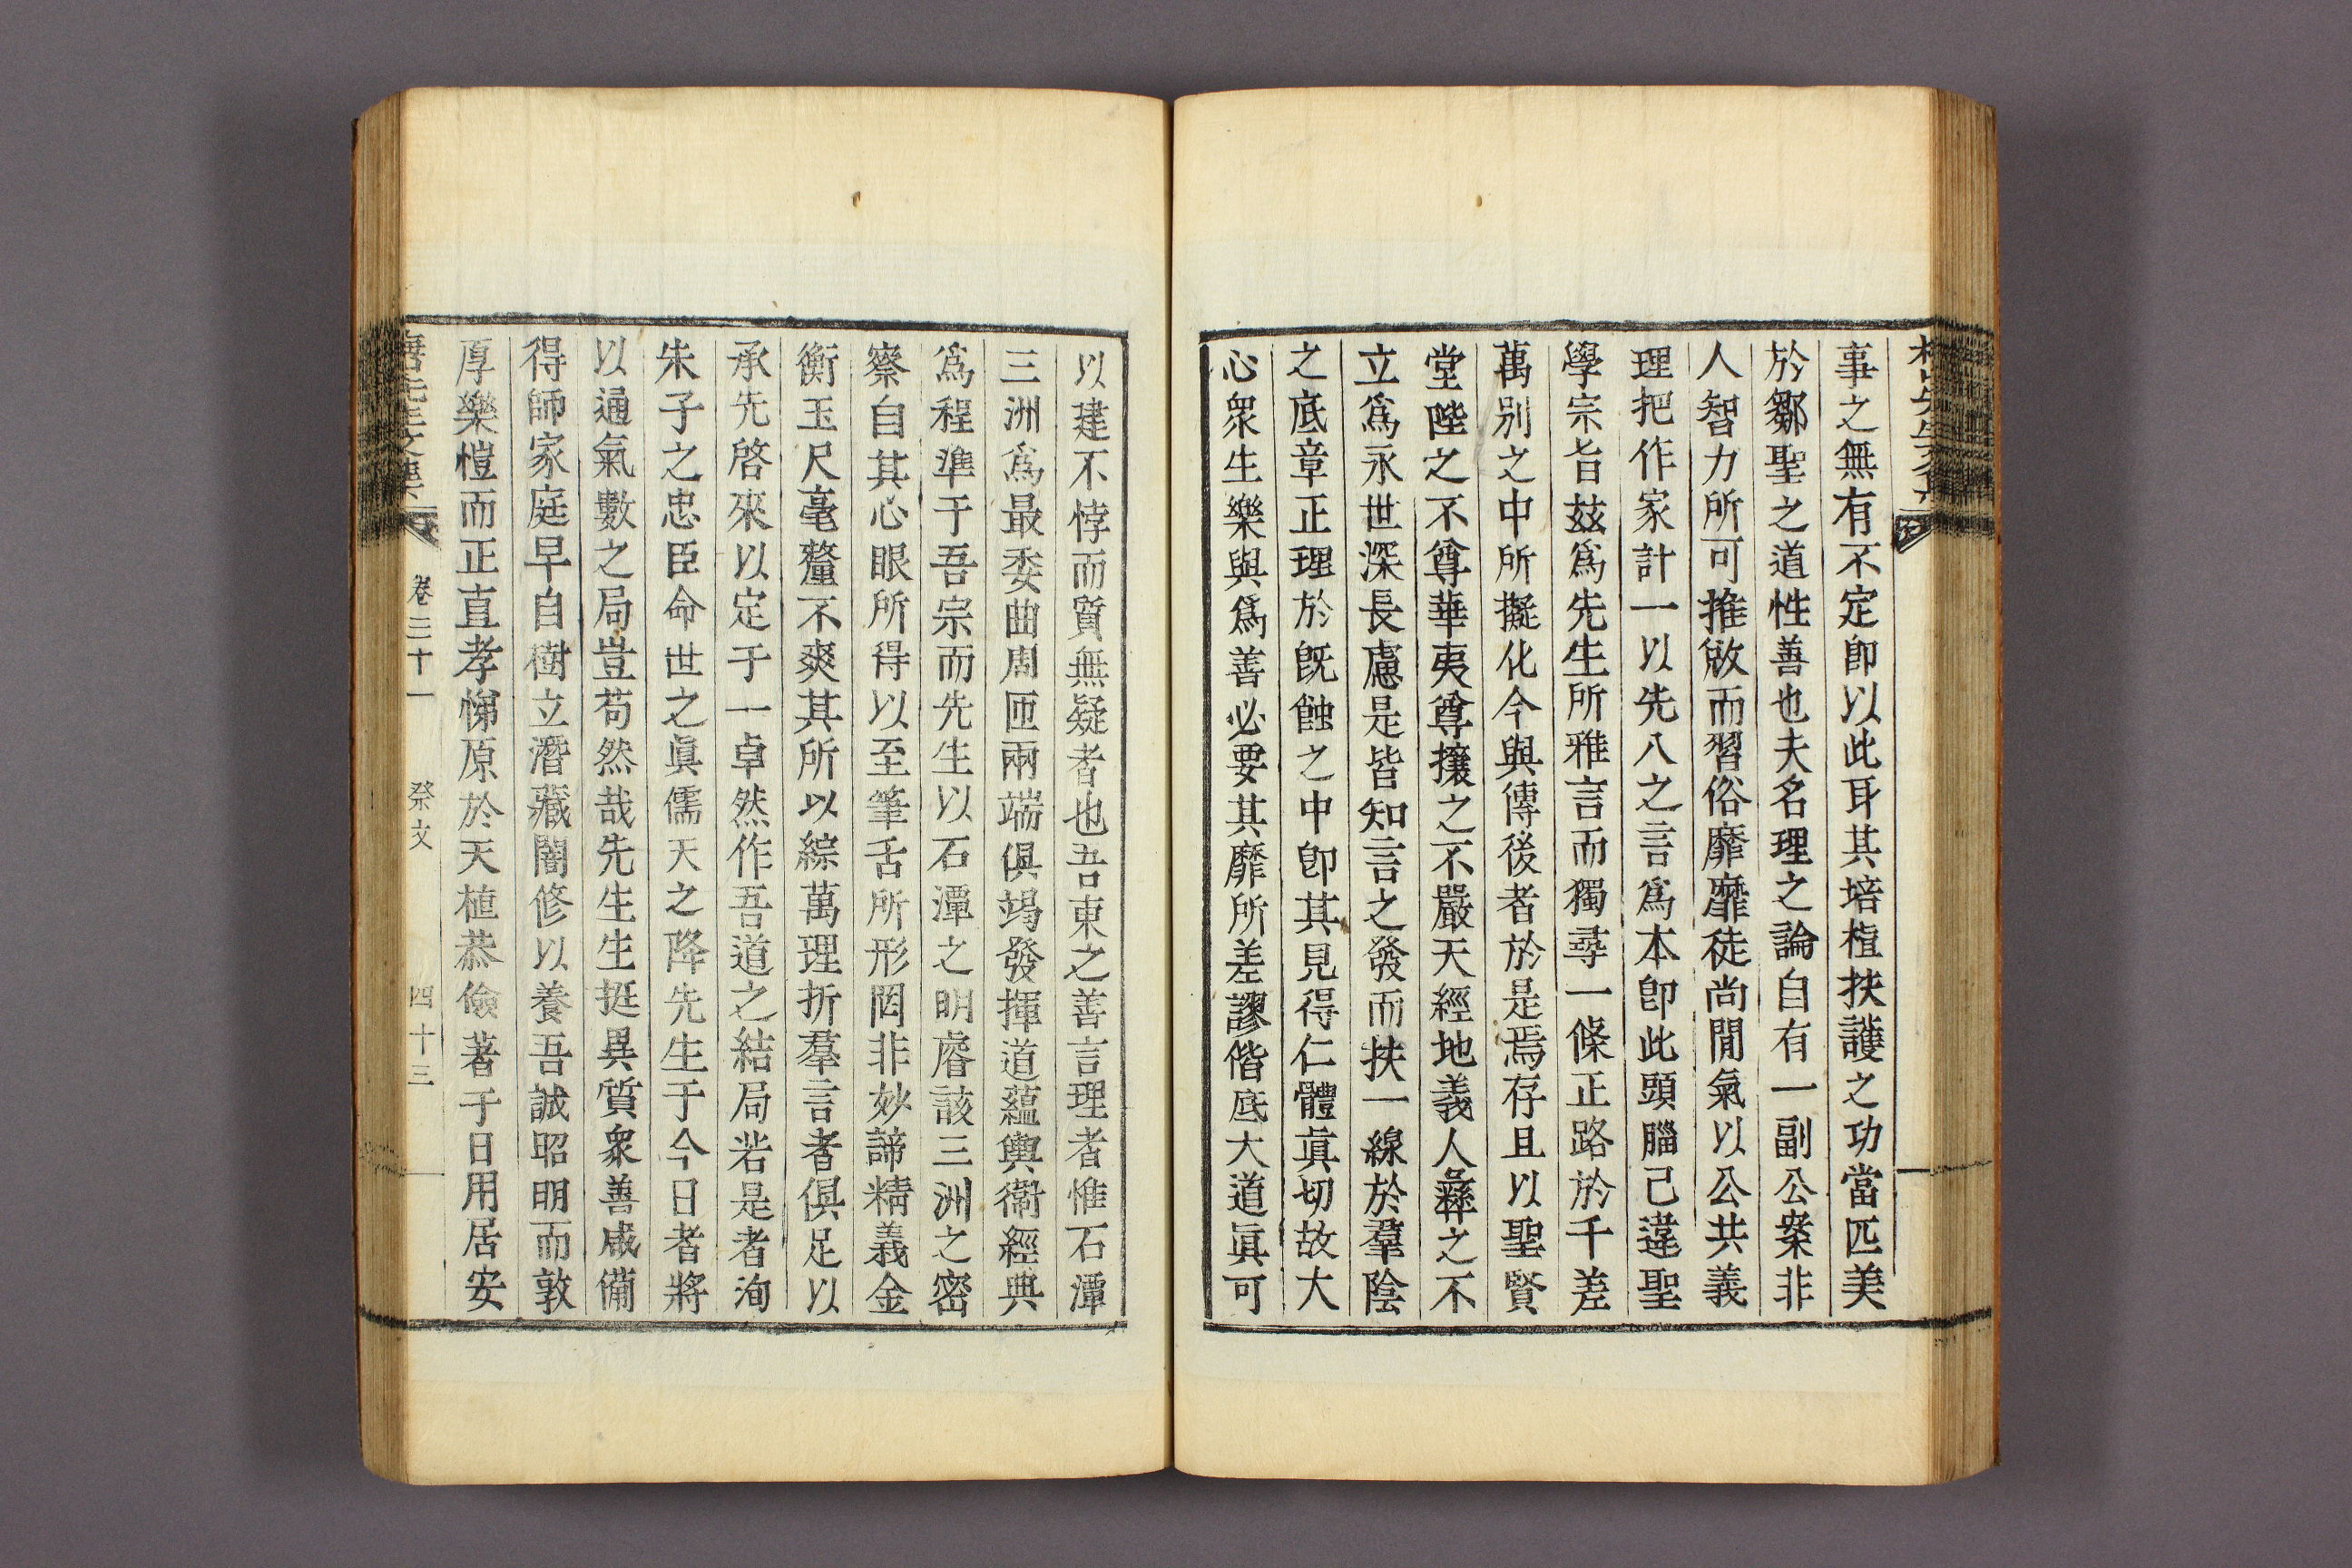 事之無有不定卽以此耳其培植扶護之功當匹美
於鄒聖之道性善也夫名理之論自有一副公案非
人智力所可推敓而習俗靡靡徒尚閒氣以公共義
理把作家計一以先入之言爲本卽此頭腦己違聖
學宗旨玆爲先生所雅言而獨尋一條正路於千差
萬別之中所擬化今與傳後者於是焉存且以聖賢
堂陛之不尊華夷尊攘之不嚴天經地義人彝之不
立爲永世深長慮是皆知言之發而扶一線於羣陰
之底章正理於旣蝕之中卽其見得仁體眞切故大
心衆生樂與爲善必要其靡所差謬偕底大道眞可
以建不悖而質無疑者也吾東之善言理者惟石潭
三洲爲最委曲周匝兩端俱竭發揮道蘊輿衞經典
爲程準于吾宗而先生以石潭之明睿該三洲之密
察自其心眼所得以至筆舌所形罔非妙諦精義金
衡玉尺毫釐不爽其所以綜萬理折羣言者俱足以
承先啓來以定于一卓然作吾道之結局若是者洵
朱子之忠臣命世之眞儒天之降先生于今日者將
以通氣數之局豈苟然哉先生生挺異質衆善咸備
得師家庭早自樹立潛藏闇修以養吾誠昭明而敦
厚樂愷而正直孝悌原於天植恭儉著于日用居安
卷三十一 祭文 四十三